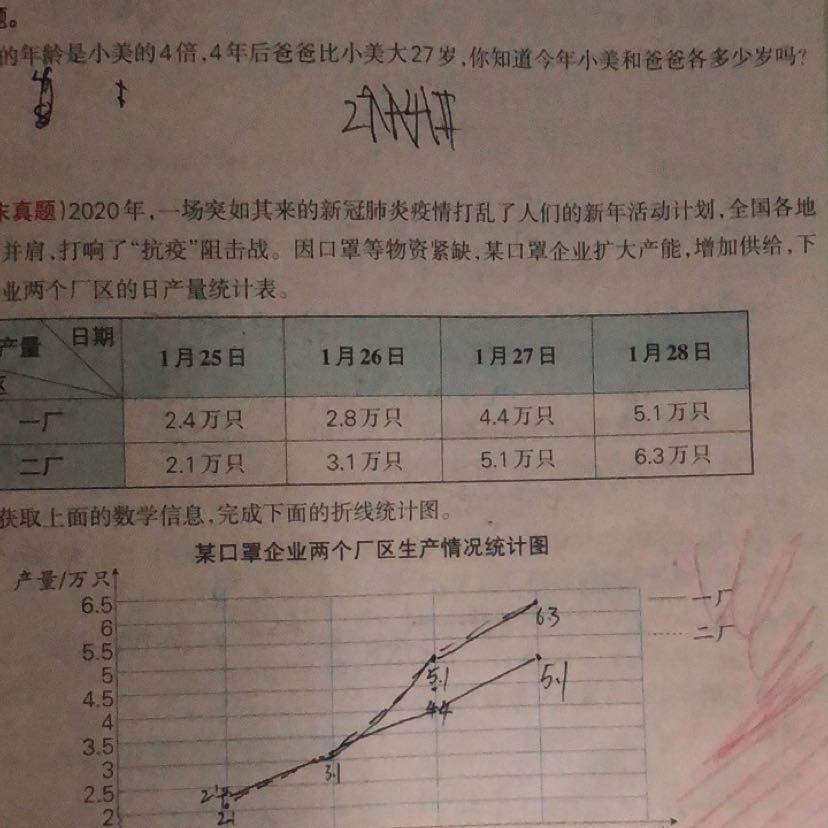 题。
的年龄是小美的4倍,4年后爸爸比小美大27岁,你知道今年小美和爸爸各多少岁吗?
末真题)2020年,一场突如其来的新冠肺炎疫情打乱了人们的新年活动计划,全国各地
并肩,打响了“抗疫”阻击战。因口罩等物资紧缺,某口罩企业扩大产能,增加供给,下
业两个厂区的日产量统计表。
产量 日期 1月25日 1月26日 1月27日 1月28日
区
一厂 2.4万只 2.8万只 4.4万只 5.1万只
二厂 2.1万只 3.1万只 5.1万只 6.3万只
获取上面的数学信息,完成下面的折线统计图。
某口罩企业两个厂区生产情况统计图
产量/万只
6.5 一厂
6 6.3 二厂
5.5
5 5.1 5.1
4.5
4 4.4
3.5
3 3.1
2.5
2 2.1